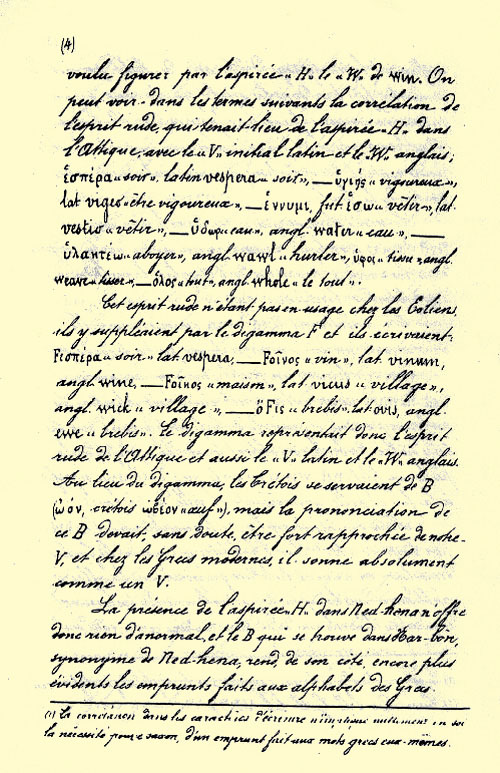 (4)
voulu figurer par l'aspirée « H » le « W » de win. On
peut voir dans les termes suivants la corrélation de
l'esprit rude, qui tenait lieu de l'aspirée « H » dans
l'Attique, avec le « V » initial latin et le « W » anglais;
ἑσπέρα « soir », latin vespera « soir », — ὑγιής « vigoureux »,
lat viges « être vigoureux », — ἕννυμι, fut ἕσω « vêtir », lat.
vestio « vêtir », — ὕδωρ « eau », angl water « eau », —
ὑλακτέω « aboyer », angl wawl « hurler », ὕφοι « tissu » angl.
weave « tisser », — ὅλος « but », angl whole « le tout ».
Cet esprit rude n'étant pas en usage chez les Eoliens,
ils y suppléaient par le digamma F et ils écrivaient:
Fεσπέρα « soir » lat vespera, — Fοῖνος « vin », lat. vinum,
angl. wine, — Fοῖκος « maison », lat. vicus « village »,
angl. wick « village », — ὄFις « brebis » lat ovis, angl.
ewe « brebis ». Le digamma représentait donc l'esprit
rude de l'Attique et aussi le « V » latin et le « W » anglais.
Au lieu du digamma, les Crétois se servaient de B
(ὠόν, crétois ὠβίον « œuf »), mais la prononciation de
ce B devait, sans doute, être fort rapprochée de notre
V, et chez les Grecs modernes, il sonne absolument
comme un V.
La présence de l'aspirée « H » dans Ned-hena n'offre
donc rien d'anormal, et le B qui se trouve dans Har-bôn,
synonyme de Ned-hena, rend, de son côté, encore plus
évidents les emprunts faits aux alphabets des Grecs.
(1) La corrélation dans les caractères d'écriture n'implique nullement en soi
la nécessité pour le saxon, d'un emprunt fait aux mots grecs eux-mêmes.